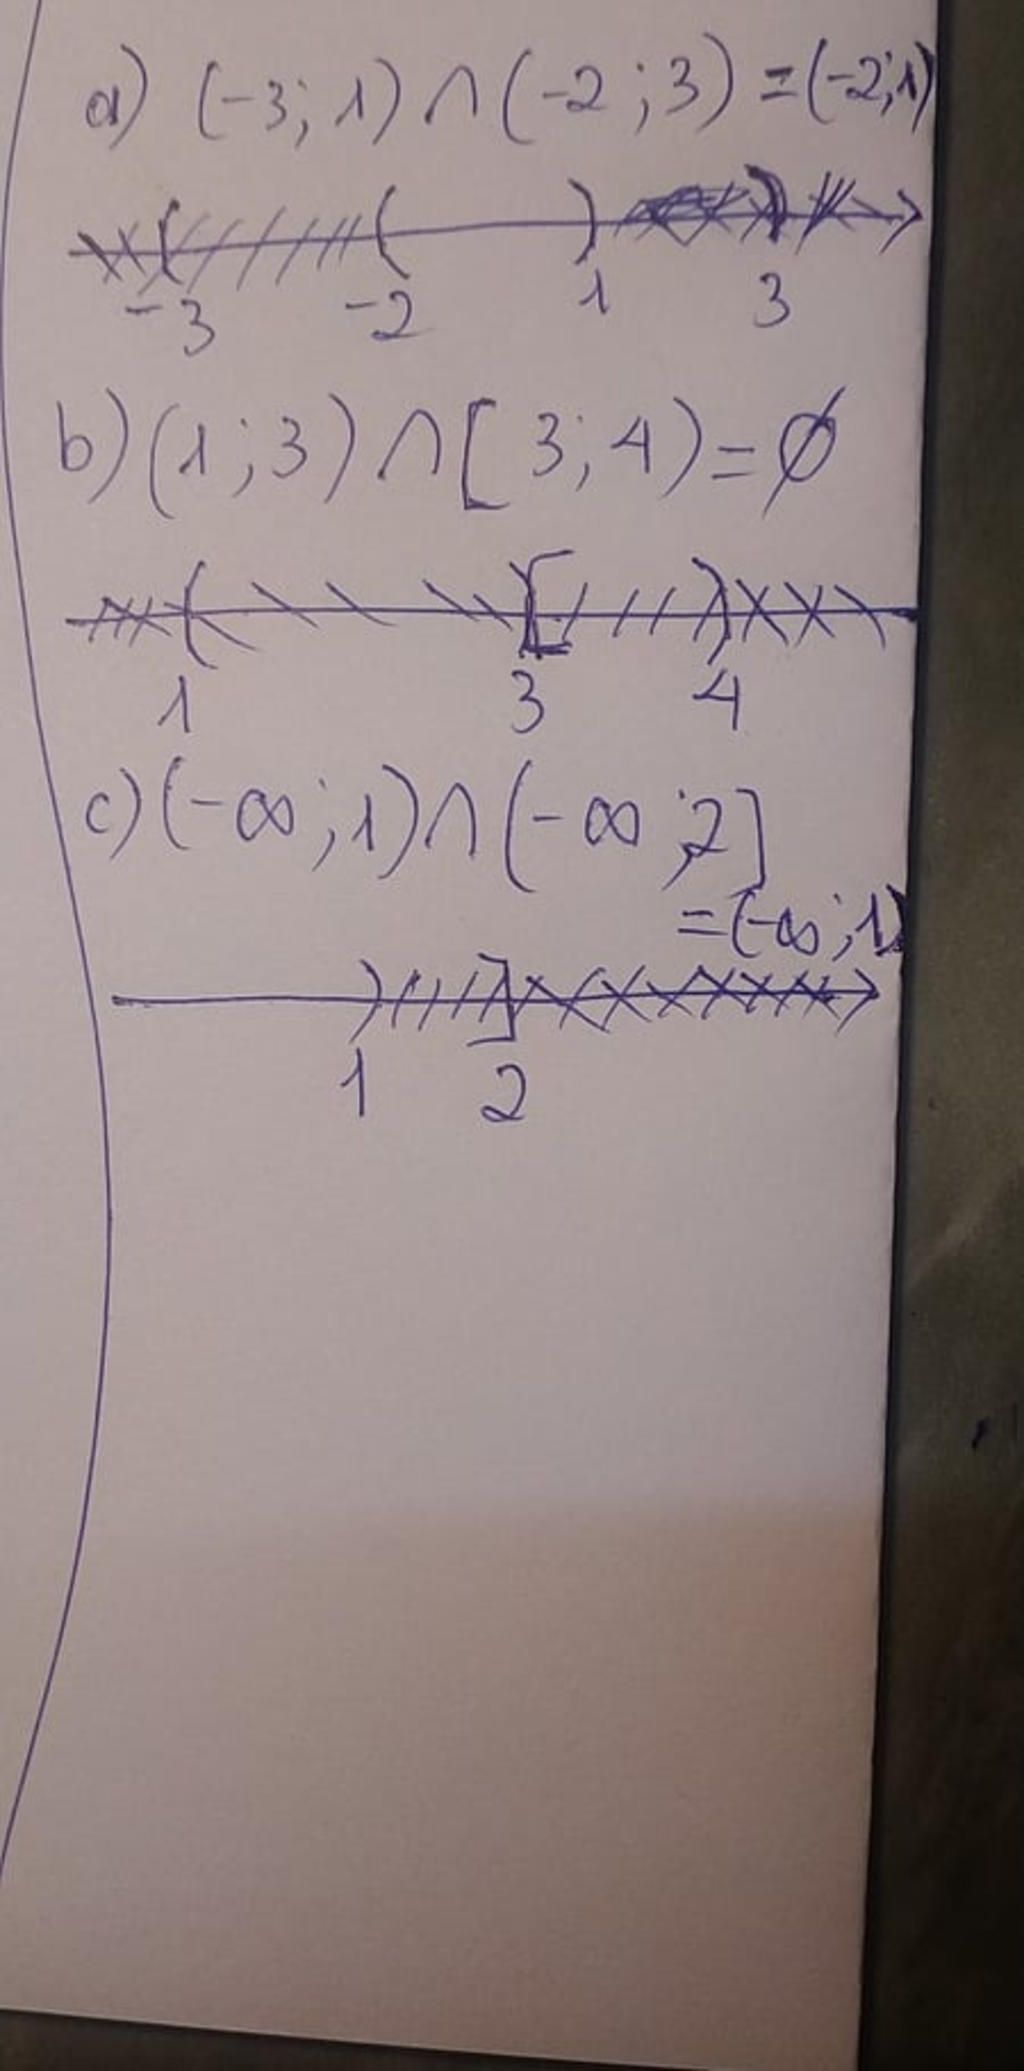 a) (-3; 1) ∩ (-2 ; 3) = (-2; 1)
-3 -2 1 3
b) (1 ; 3) ∩ [ 3; 4) = ∅
1 3 4
c) (-∞ ; 1) ∩ (-∞ ; 2]
= (-∞ ; 1)
1 2